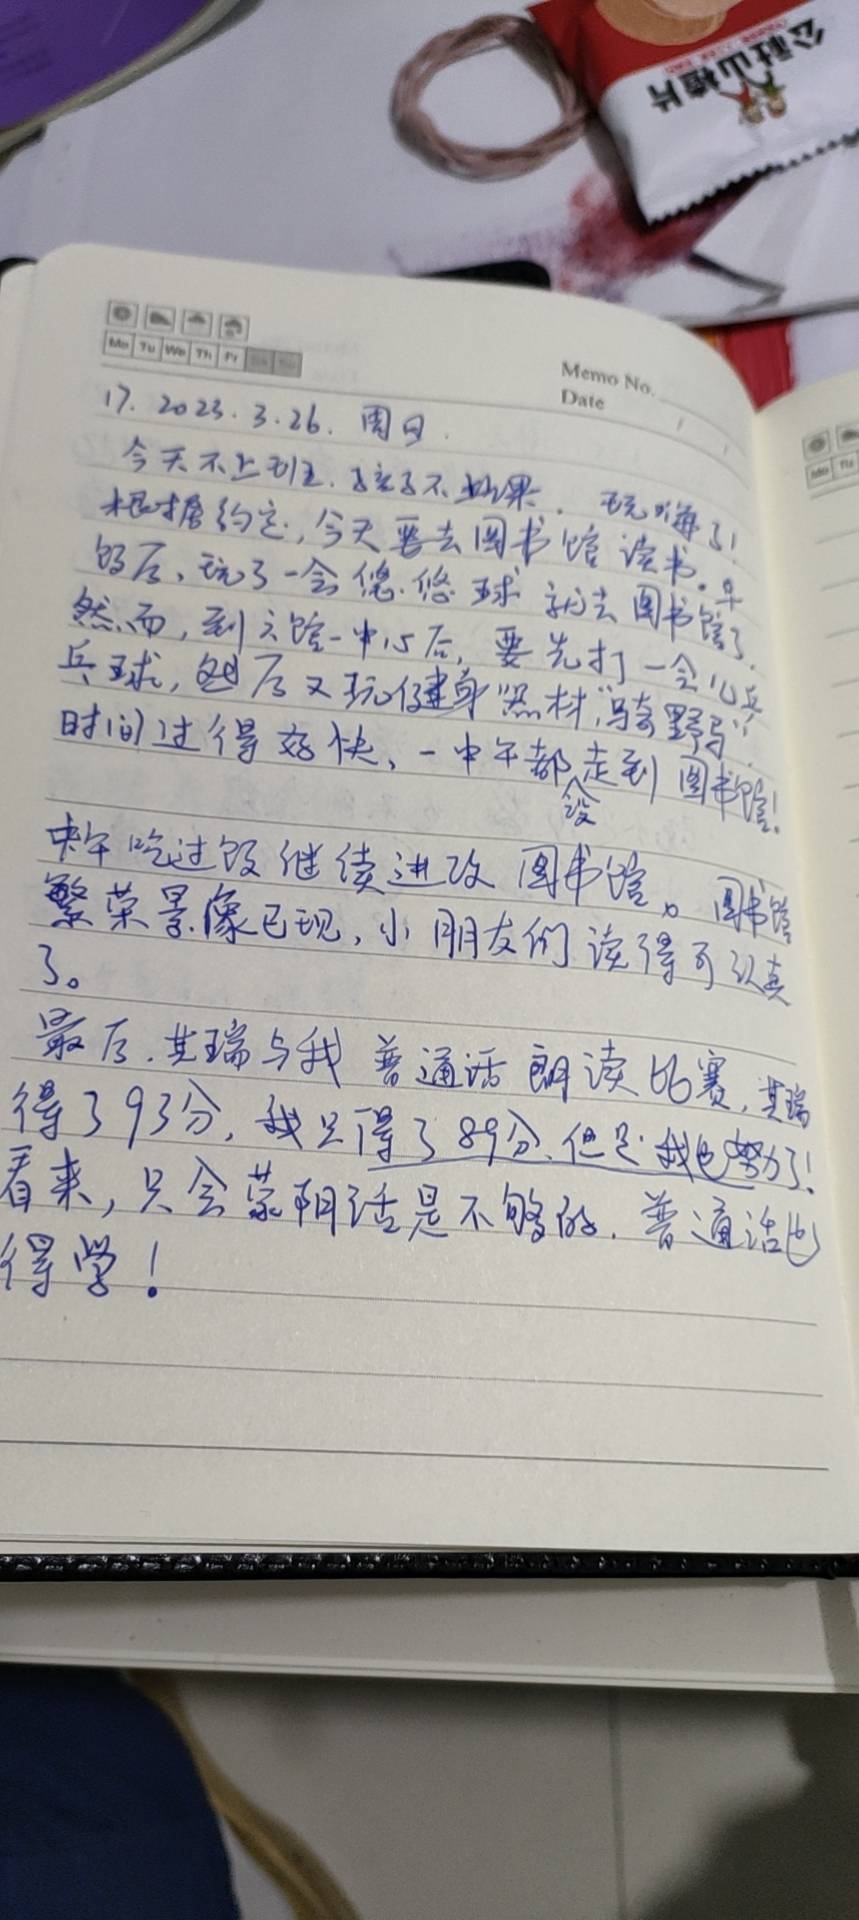 公社山楂片
Mo Tu We Th Fr Sa Su
Memo No.
Date / /
Mo Tu
17. 2023.3.26. 周日.
今天不上班, 孩子不上课, 玩嗨了!
根据约定, 今天要去图书馆读书。早
饭后, 玩了一会悠悠球就去图书馆了.
然而, 到六馆一中心后, 要先打一会儿乒
乓球, 然后又玩健身器材,"骑野马".
时间过得好快, 一中午都没走到图书馆!
中午吃过饭继续进攻图书馆。图书馆
繁荣景像已现, 小朋友们读得可认真
了。
最后, 其瑞与我普通话朗读比赛, 其瑞
得了93分, 我只得了89分, 但是我也努力了!
看来, 只会蒙阴话是不够的, 普通话也
得学!